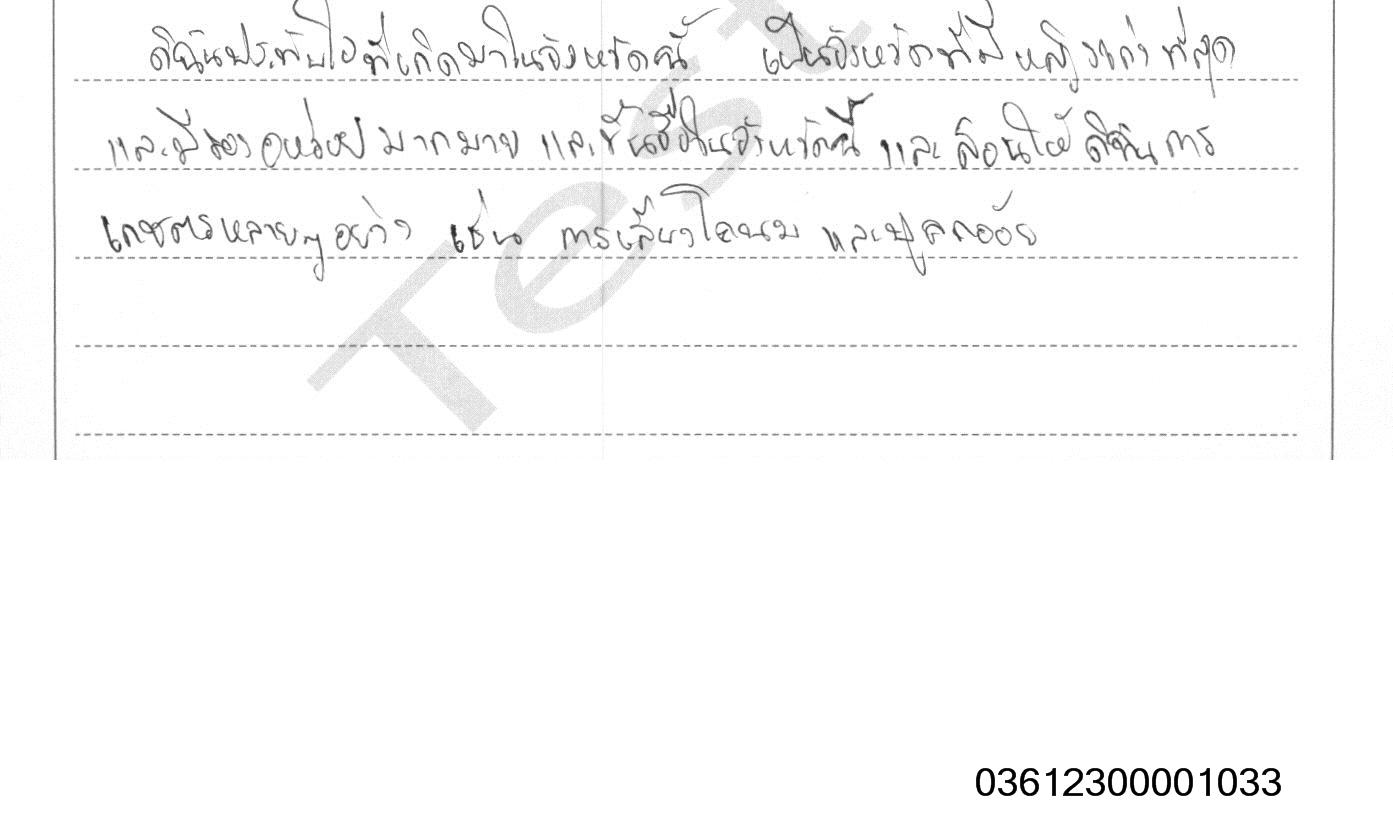 ดิฉันประทับใจที่เกิดมาในจังหวัดนี้ เป็นจังหวัดที่มีหญิงเก่งที่สุด
และมีของอร่อยมากมาย และขึ้นชื่อในจังหวัดนี้ และสอนให้ดิฉันการ
เกษตรหลายๆอย่าง เช่น การเลี้ยงโคนม และปลูกอ้อย
Test
03612300001033